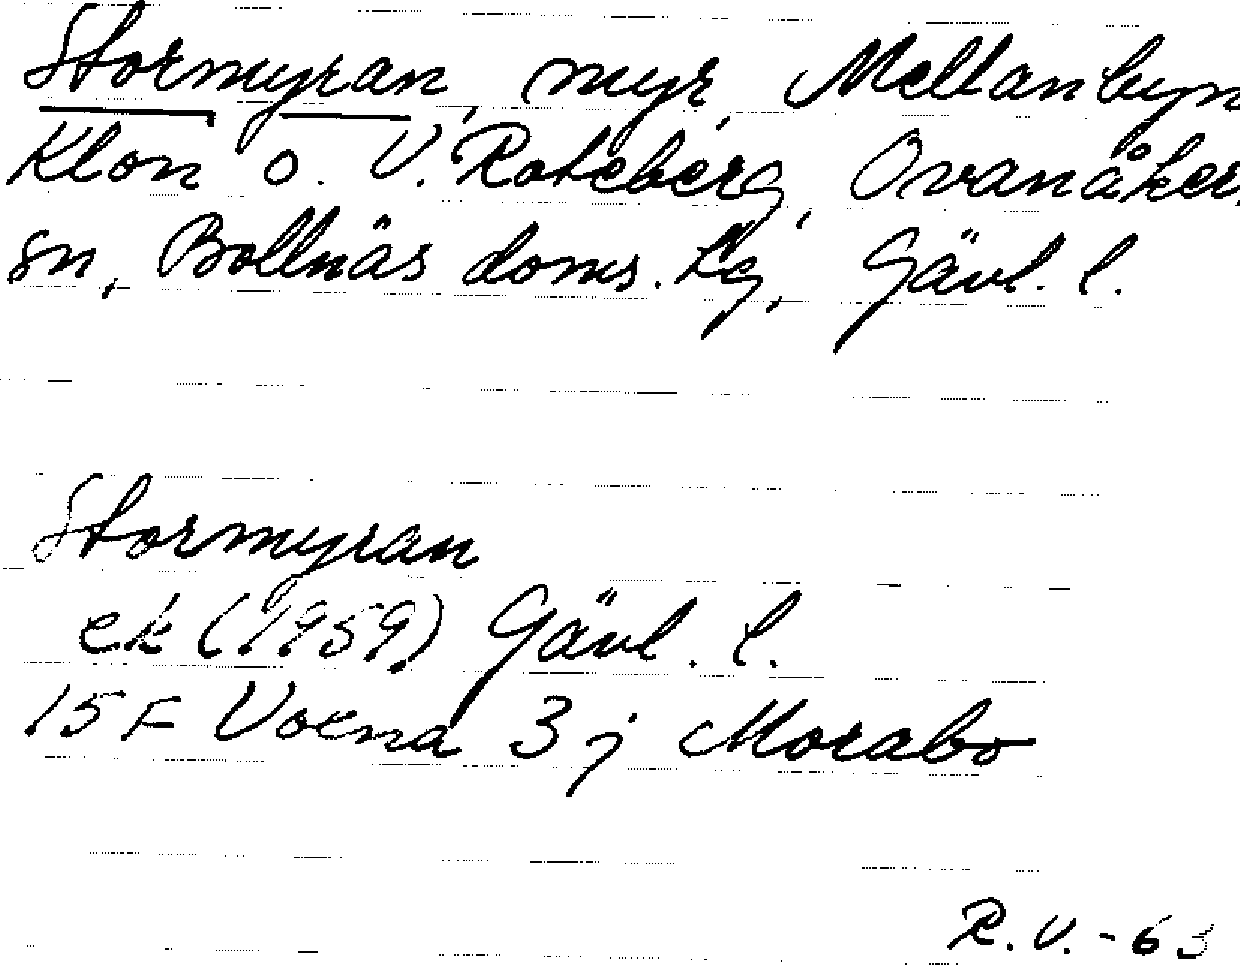 Stormyran, myr, Mellanbyn
Klon o. V. Roteberg, Ovanåkers
sn, Bollnäs doms. Lg, Gävl. l.
Stormyran
ek (1959) Gävl. l.
15 F Voxna 3 j Morabo
R.V.-63